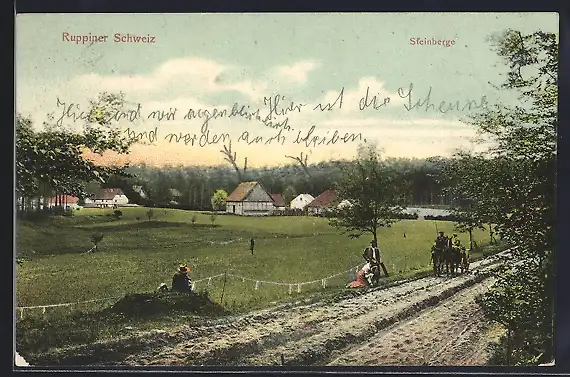 Ruppiner Schweiz
Steinberge
Hier sind wir augenblicklich
Hier ist die Scheune
und werden auch bleiben.